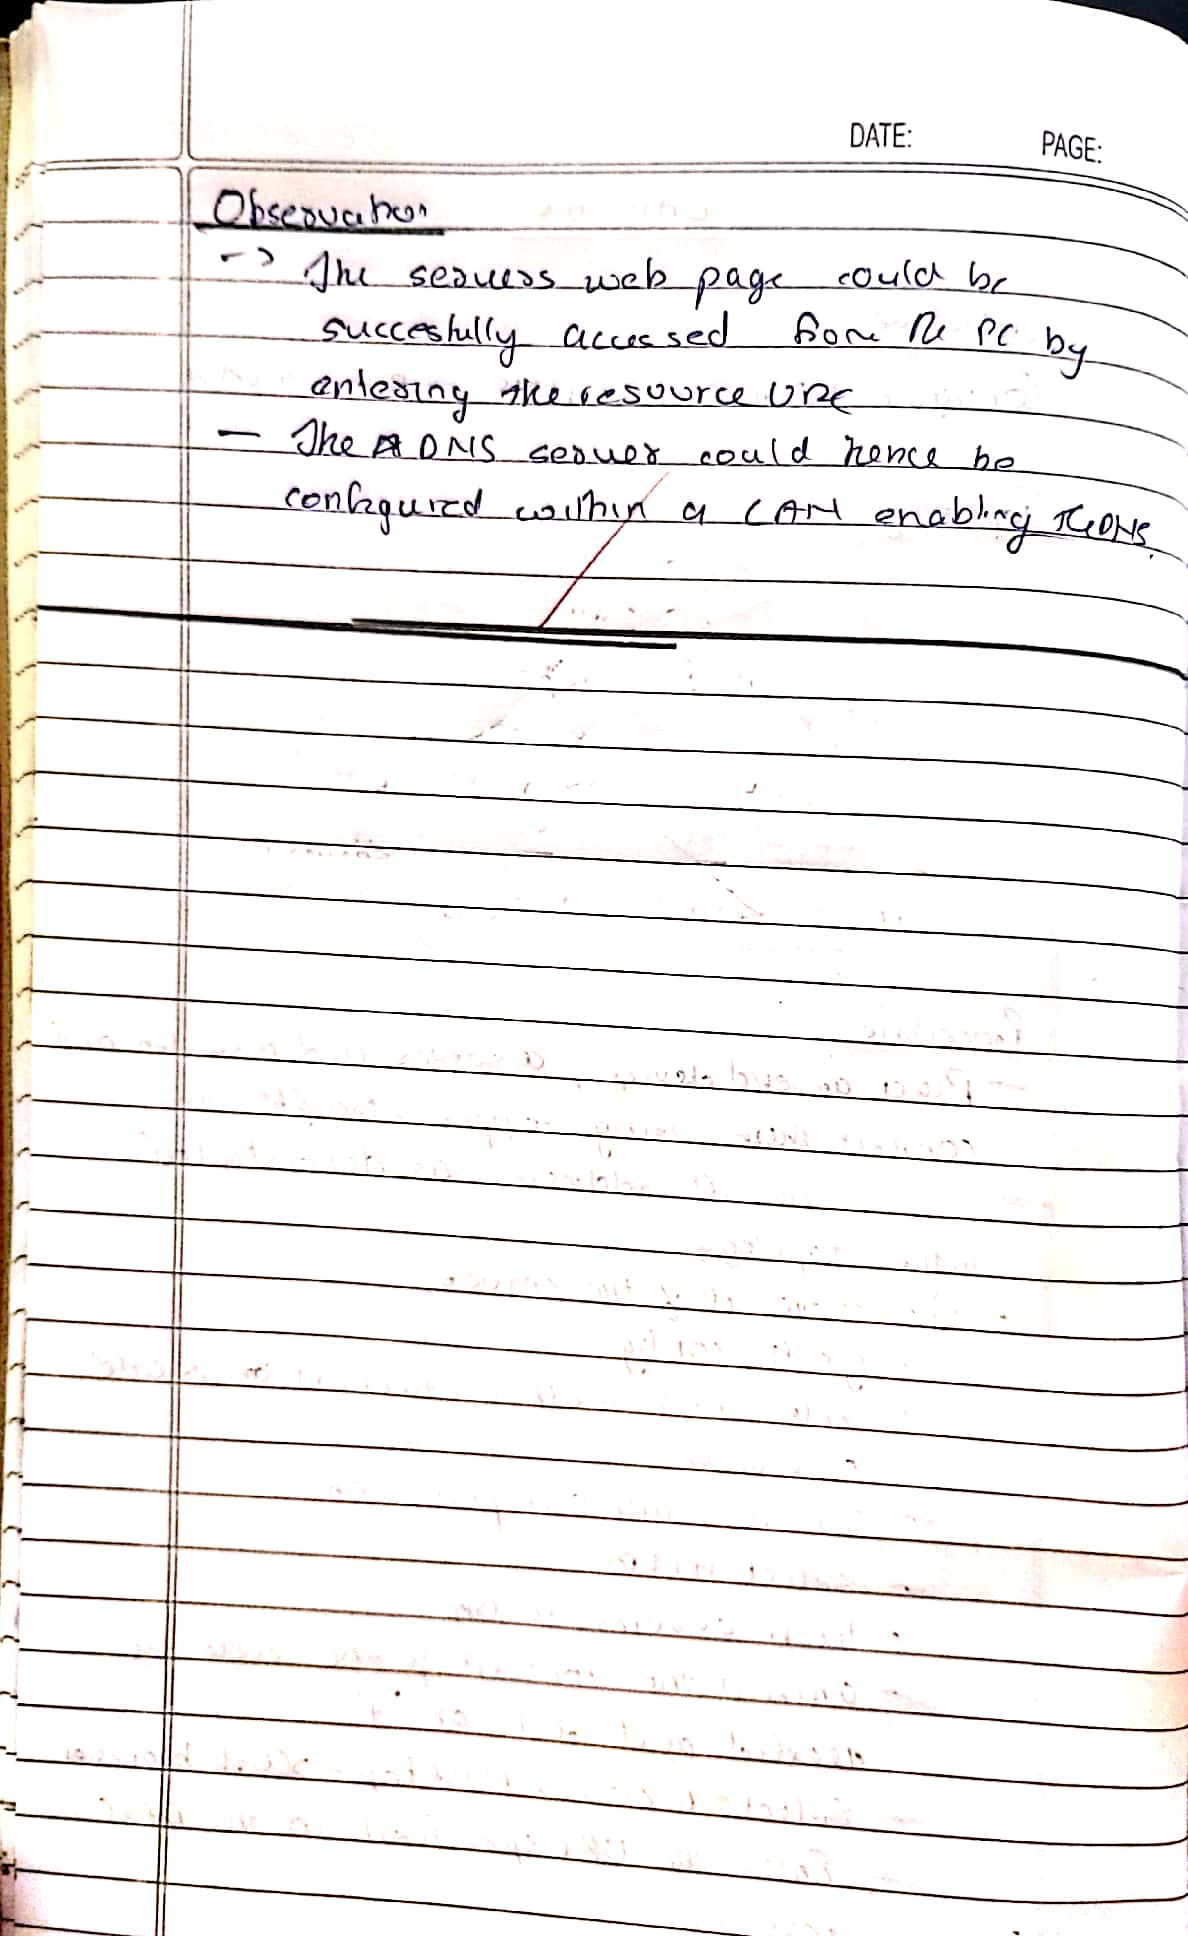 DATE: PAGE:
Observation
-> The servers web page could be
succesfully accessed from the PC by
entering the resource URL
- The DNS server could hence be
configured within a LAN enabling the DNS.